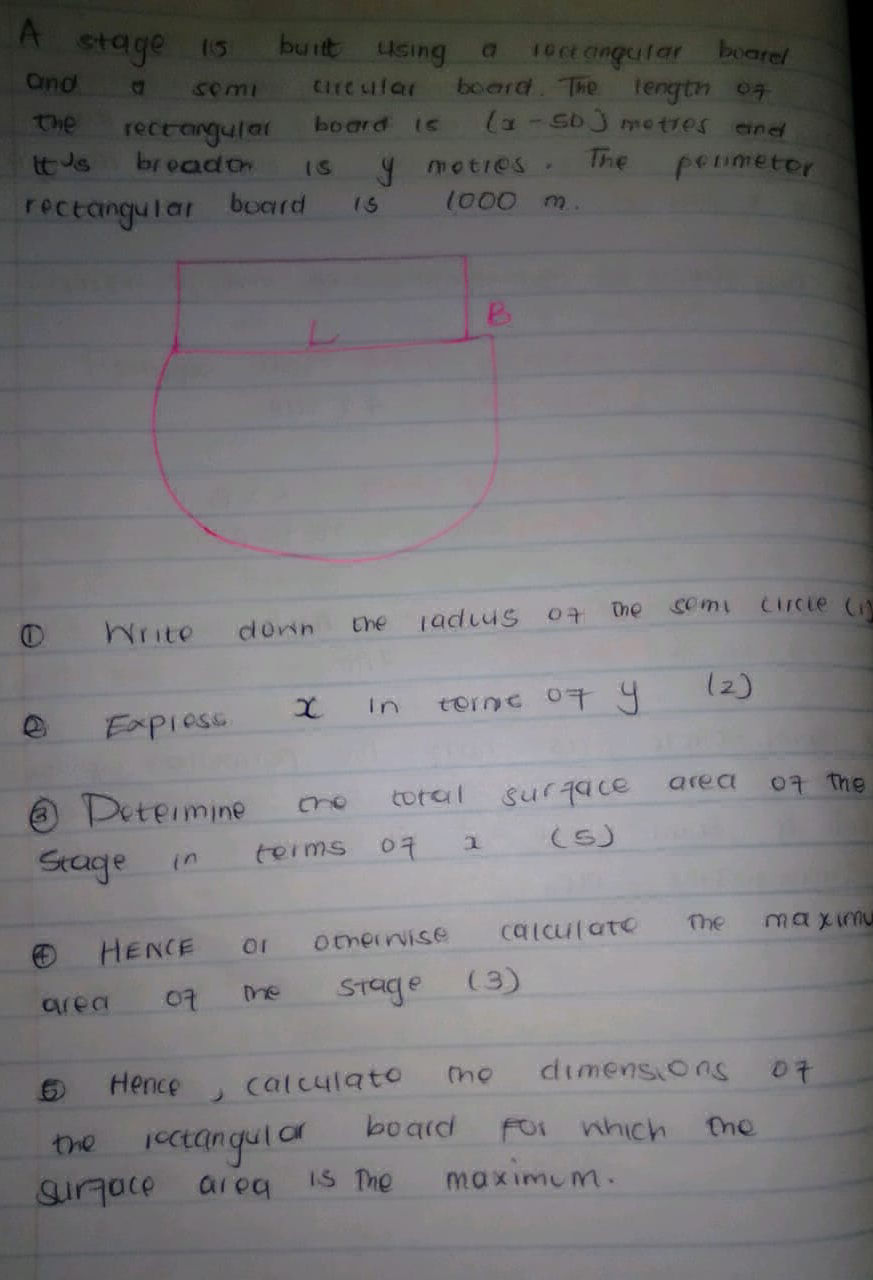 A stage is built using a rectangular board
and a semi circular board. The length of
the rectangular board is (x - 50) metres and
it's breadth is y metres. The perimeter
rectangular board is 1000 m.
B
L
① Write down the radius of the semi circle (1)
② Express x in terms of y (2)
③ Determine the total surface area of the
stage in terms of x (5)
④ HENCE or otherwise calculate the maximu
area of the stage (3)
⑤ Hence, calculate the dimensions of
the rectangular board for which the
surface area is the maximum.